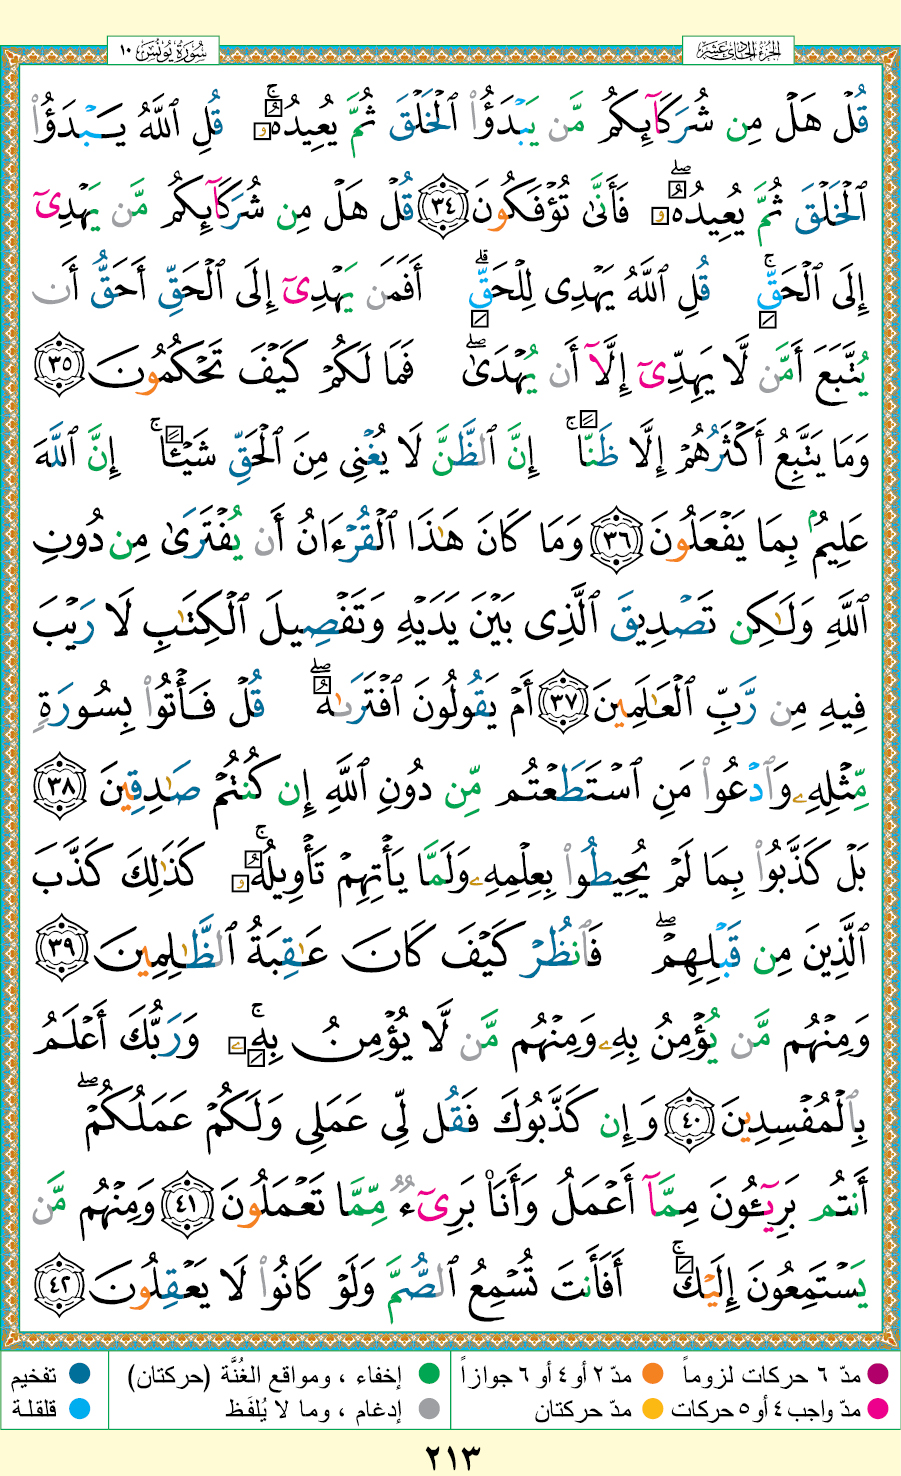 سُورَةُ يُونُس ١٠
الجزء الحادي عشر
قُلْ هَلْ مِن شُرَكَآئِكُم مَّن يَبْدَؤُا۟ ٱلْخَلْقَ ثُمَّ يُعِيدُهُۥ ۚ قُلِ ٱللَّهُ يَبْدَؤُا۟
ٱلْخَلْقَ ثُمَّ يُعِيدُهُۥ ۖ فَأَنَّىٰ تُؤْفَكُونَ ٣٤ قُلْ هَلْ مِن شُرَكَآئِكُم مَّن يَهْدِىٓ
إِلَى ٱلْحَقِّ ۚ قُلِ ٱللَّهُ يَهْدِى لِلْحَقِّ ۗ أَفَمَن يَهْدِىٓ إِلَى ٱلْحَقِّ أَحَقُّ أَن
يُتَّبَعَ أَمَّن لَّا يَهِدِّىٓ إِلَّآ أَن يُهْدَىٰ ۖ فَمَا لَكُمْ كَيْفَ تَحْكُمُونَ ٣٥
وَمَا يَتَّبِعُ أَكْثَرُهُمْ إِلَّا ظَنًّا ۚ إِنَّ ٱلظَّنَّ لَا يُغْنِى مِنَ ٱلْحَقِّ شَيْـًٔا ۚ إِنَّ ٱللَّهَ
عَلِيمٌۢ بِمَا يَفْعَلُونَ ٣٦ وَمَا كَانَ هَـٰذَا ٱلْقُرْءَانُ أَن يُفْتَرَىٰ مِن دُونِ
ٱللَّهِ وَلَـٰكِن تَصْدِيقَ ٱلَّذِى بَيْنَ يَدَيْهِ وَتَفْصِيلَ ٱلْكِتَـٰبِ لَا رَيْبَ
فِيهِ مِن رَّبِّ ٱلْعَـٰلَمِينَ ٣٧ أَمْ يَقُولُونَ ٱفْتَرَىٰهُ ۖ قُلْ فَأْتُوا۟ بِسُورَةٍ
مِّثْلِهِۦ وَٱدْعُوا۟ مَنِ ٱسْتَطَعْتُم مِّن دُونِ ٱللَّهِ إِن كُنتُمْ صَـٰدِقِينَ ٣٨
بَلْ كَذَّبُوا۟ بِمَا لَمْ يُحِيطُوا۟ بِعِلْمِهِۦ وَلَمَّا يَأْتِهِمْ تَأْوِيلُهُۥ ۚ كَذَٰلِكَ كَذَّبَ
ٱلَّذِينَ مِن قَبْلِهِمْ ۖ فَٱنظُرْ كَيْفَ كَانَ عَـٰقِبَةُ ٱلظَّـٰلِمِينَ ٣٩
وَمِنْهُم مَّن يُؤْمِنُ بِهِۦ وَمِنْهُم مَّن لَّا يُؤْمِنُ بِهِۦ ۚ وَرَبُّكَ أَعْلَمُ
بِٱلْمُفْسِدِينَ ٤٠ وَإِن كَذَّبُوكَ فَقُل لِّى عَمَلِى وَلَكُمْ عَمَلُكُمْ ۖ
أَنتُم بَرِيٓـُٔونَ مِمَّآ أَعْمَلُ وَأَنَا۠ بَرِىٓءٌ مِّمَّا تَعْمَلُونَ ٤١ وَمِنْهُم مَّن
يَسْتَمِعُونَ إِلَيْكَ ۚ أَفَأَنتَ تُسْمِعُ ٱلصُّمَّ وَلَوْ كَانُوا۟ لَا يَعْقِلُونَ ٤٢
مدّ ٦ حركات لزوماً مدّ ٢ أو ٤ أو ٦ جوازاً إخفاء ، ومواقع الغُنَّة (حركتان) تفخيم
مدّ واجب ٤ أو ٥ حركات مدّ حركتان إدغام ، وما لا يُلفَظ قلقلة
٢١٣